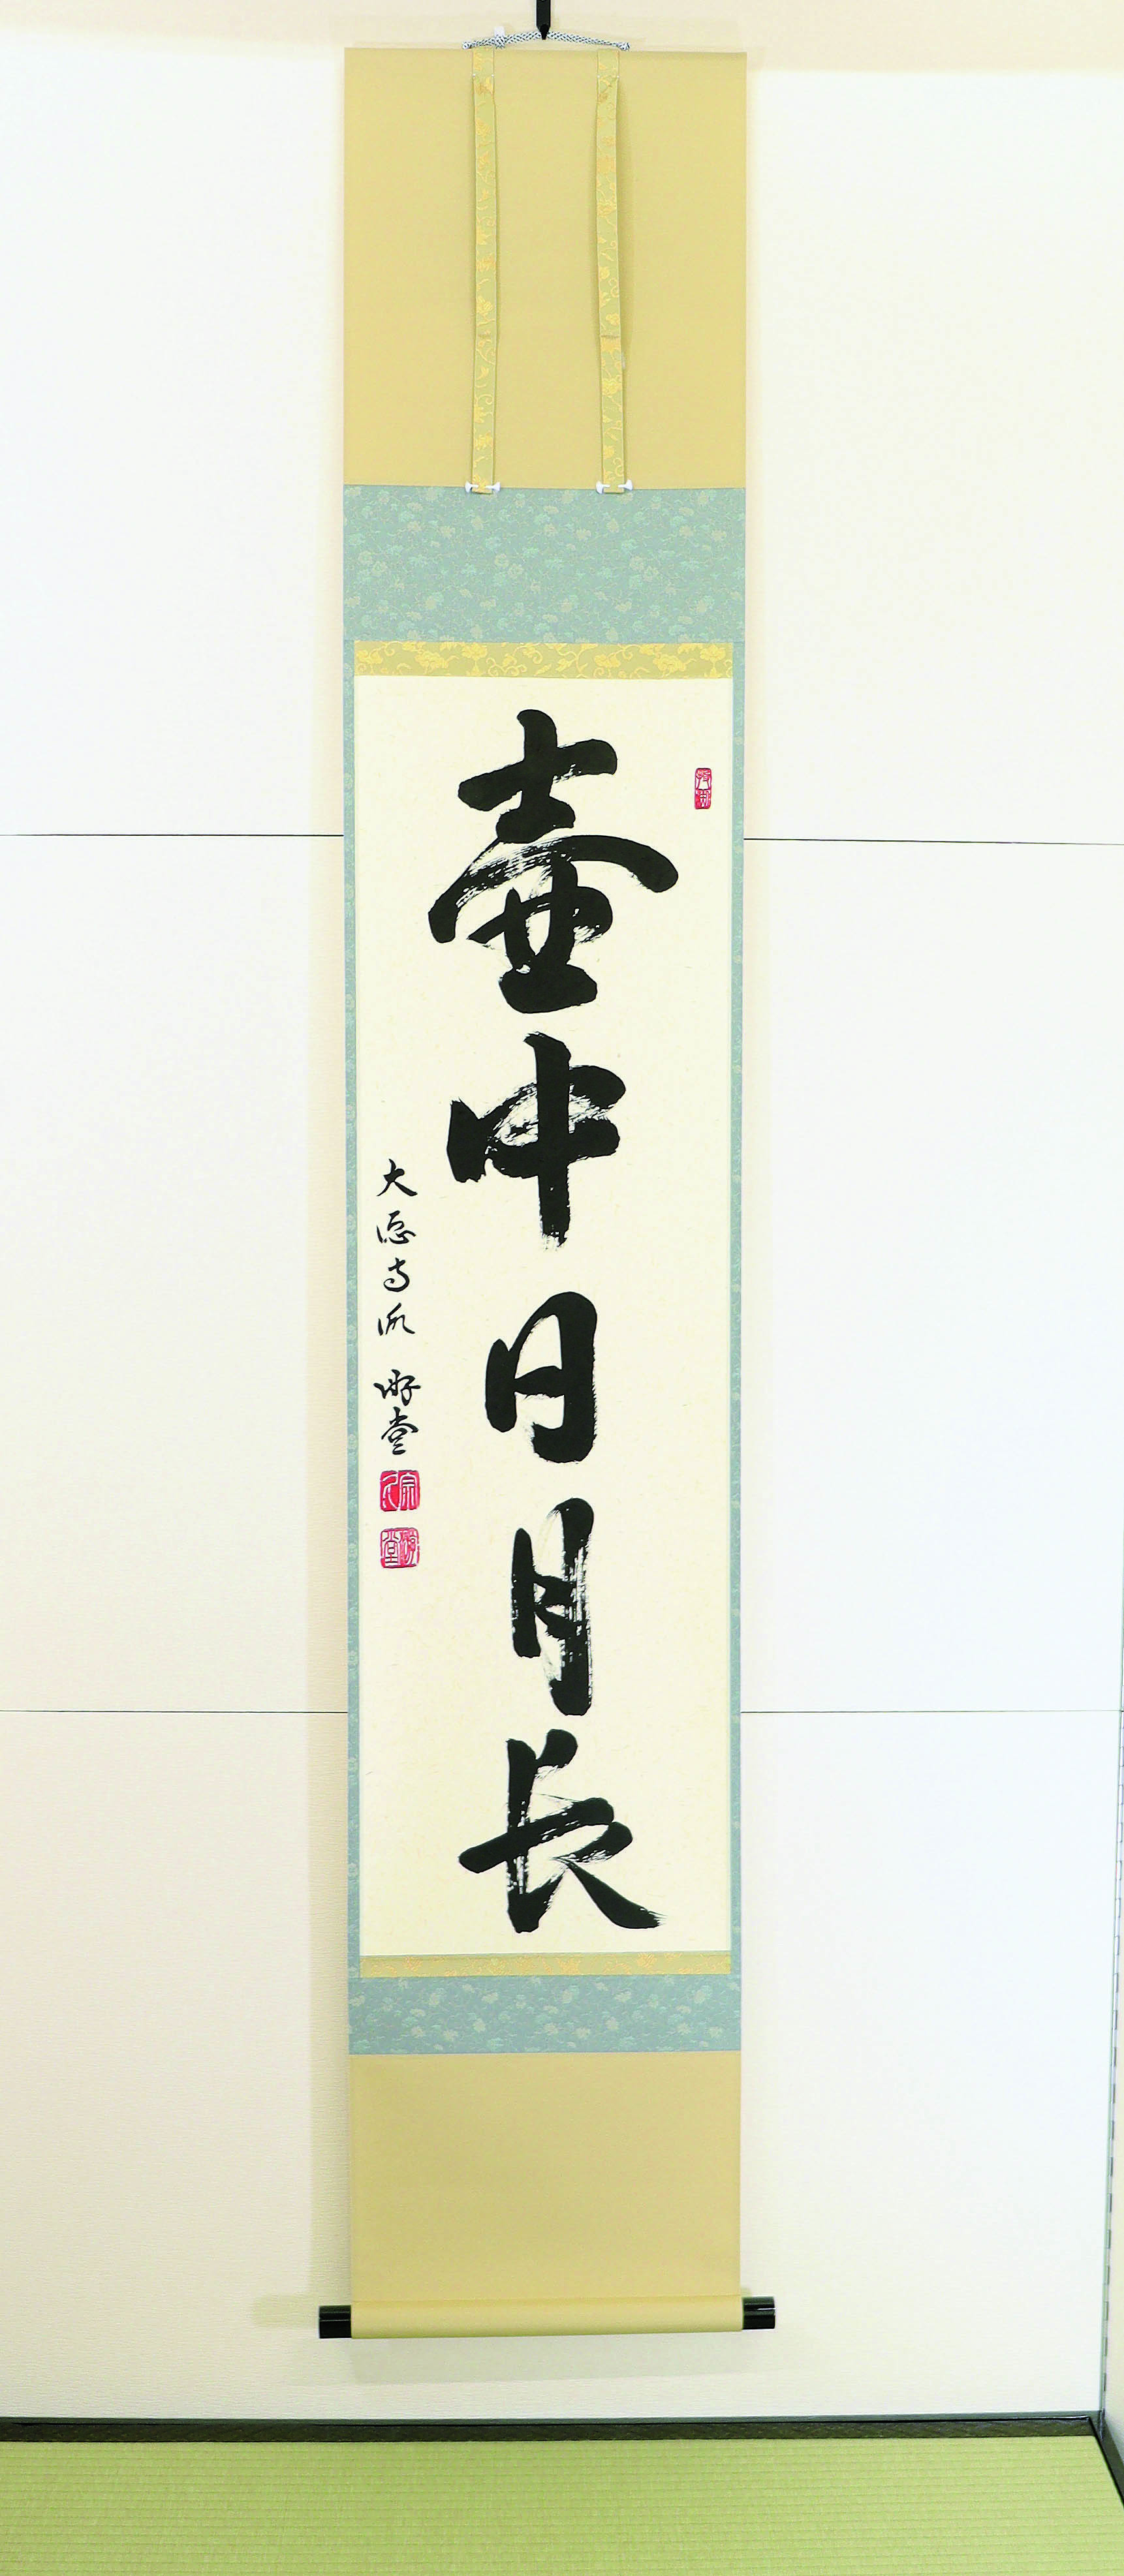 壷中日月長
大徳寺派 游堂